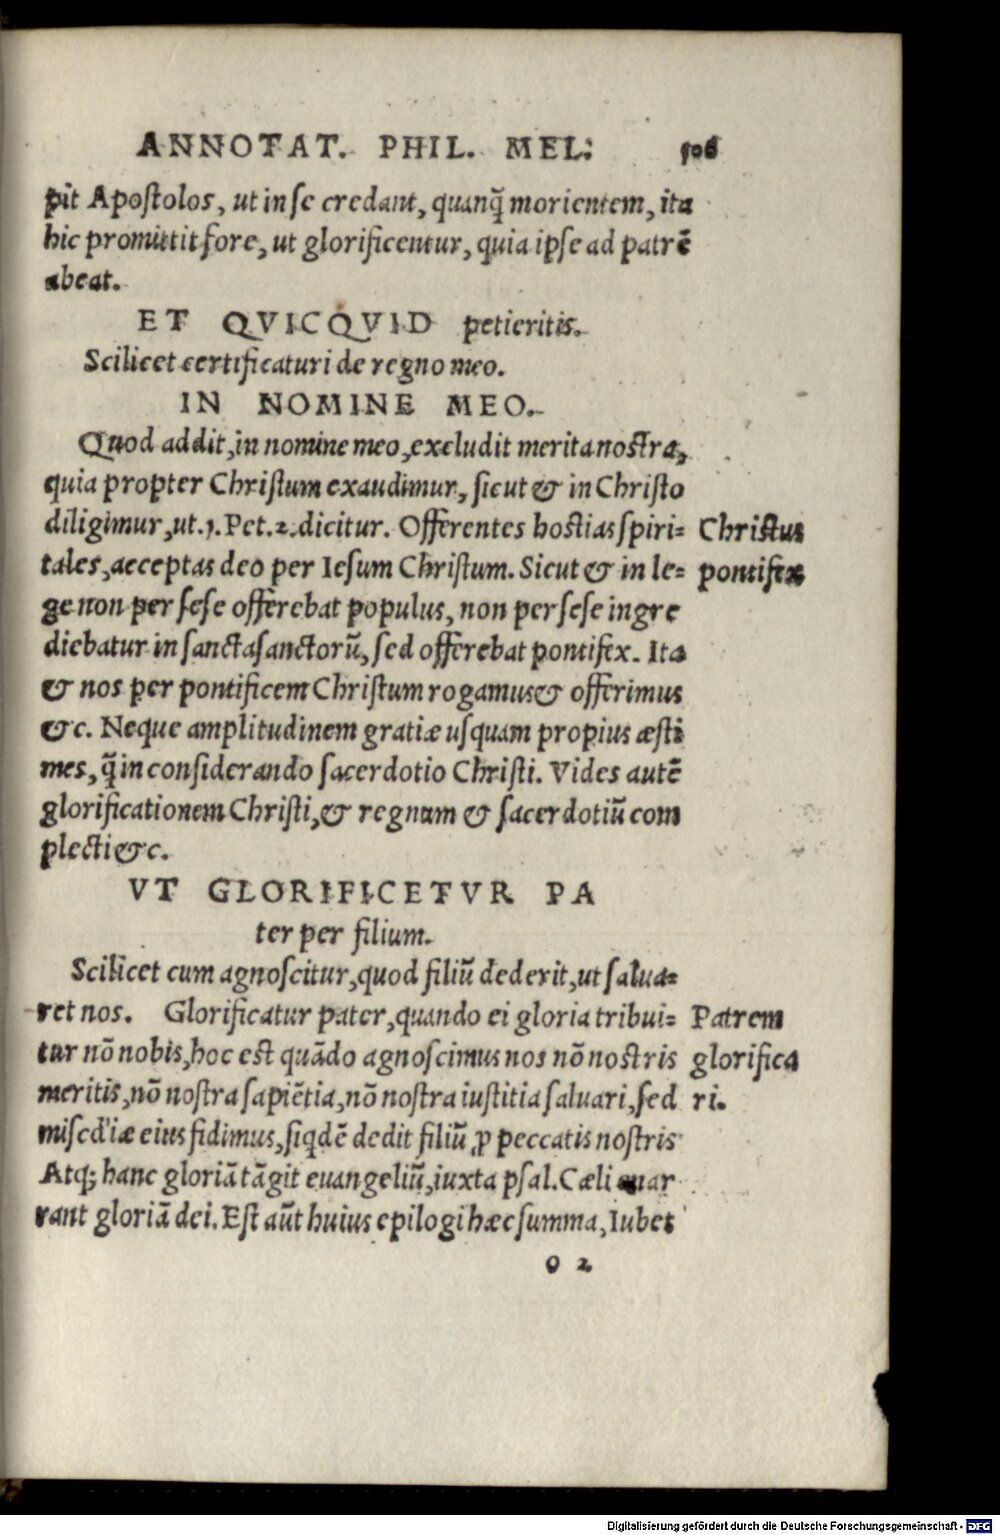 ANNOTAT. PHIL. MEL: 106
pit Apoſtolos, ut in ſe credant, quanq̃ morientem, ita
hic promittit fore, ut glorificentur, quia ipſe ad patrē
abeat.
ET QVICQVID petieritis.
Scilicet certificaturi de regno meo.
IN NOMINE MEO.
Quod addit, in nomine meo, excludit merita noſtra,
quia propter Chriſtum exaudimur, ſicut & in Chriſto
diligimur, ut. 1. Pet. 2. dicitur. Offerentes hoſtias ſpiri= Chriſtus
tales, acceptas deo per Ieſum Chriſtum. Sicut & in le= pontifex
ge non per ſeſe offerebat populus, non per ſeſe ingre
diebatur in ſancta ſanctorū, ſed offerebat pontifex. Ita
& nos per pontificem Chriſtum rogamus & offerimus
&c. Neque amplitudinem gratiæ uſquam propius æſti
mes, q̃ in conſiderando ſacerdotio Chriſti. Vides autē
glorificationem Chriſti, & regnum & ſacerdotiū com
plecti &c.
VT GLORIFICETVR PA
ter per filium.
Scilicet cum agnoſcitur, quod filiū dederit, ut ſalua=
ret nos. Glorificatur pater, quando ei gloria tribui= Patrem
tur nō nobis, hoc eſt quādo agnoſcimus nos nō noſtris glorifica
meritis, nō noſtra ſapiētia, nō noſtra iuſtitia ſaluari, ſed ri.
miſcd'iæ eius fidimus, ſiqdē dedit filiū ꝓ peccatis noſtris
Atq; hanc gloriā tāgit euangeliū, iuxta pſal. Cæli enar
rant gloriā dei. Eſt aūt huius epilogi hæc ſumma, Iubet
o 2
Digitalisierung gefördert durch die Deutsche Forschungsgemeinschaft - DFG